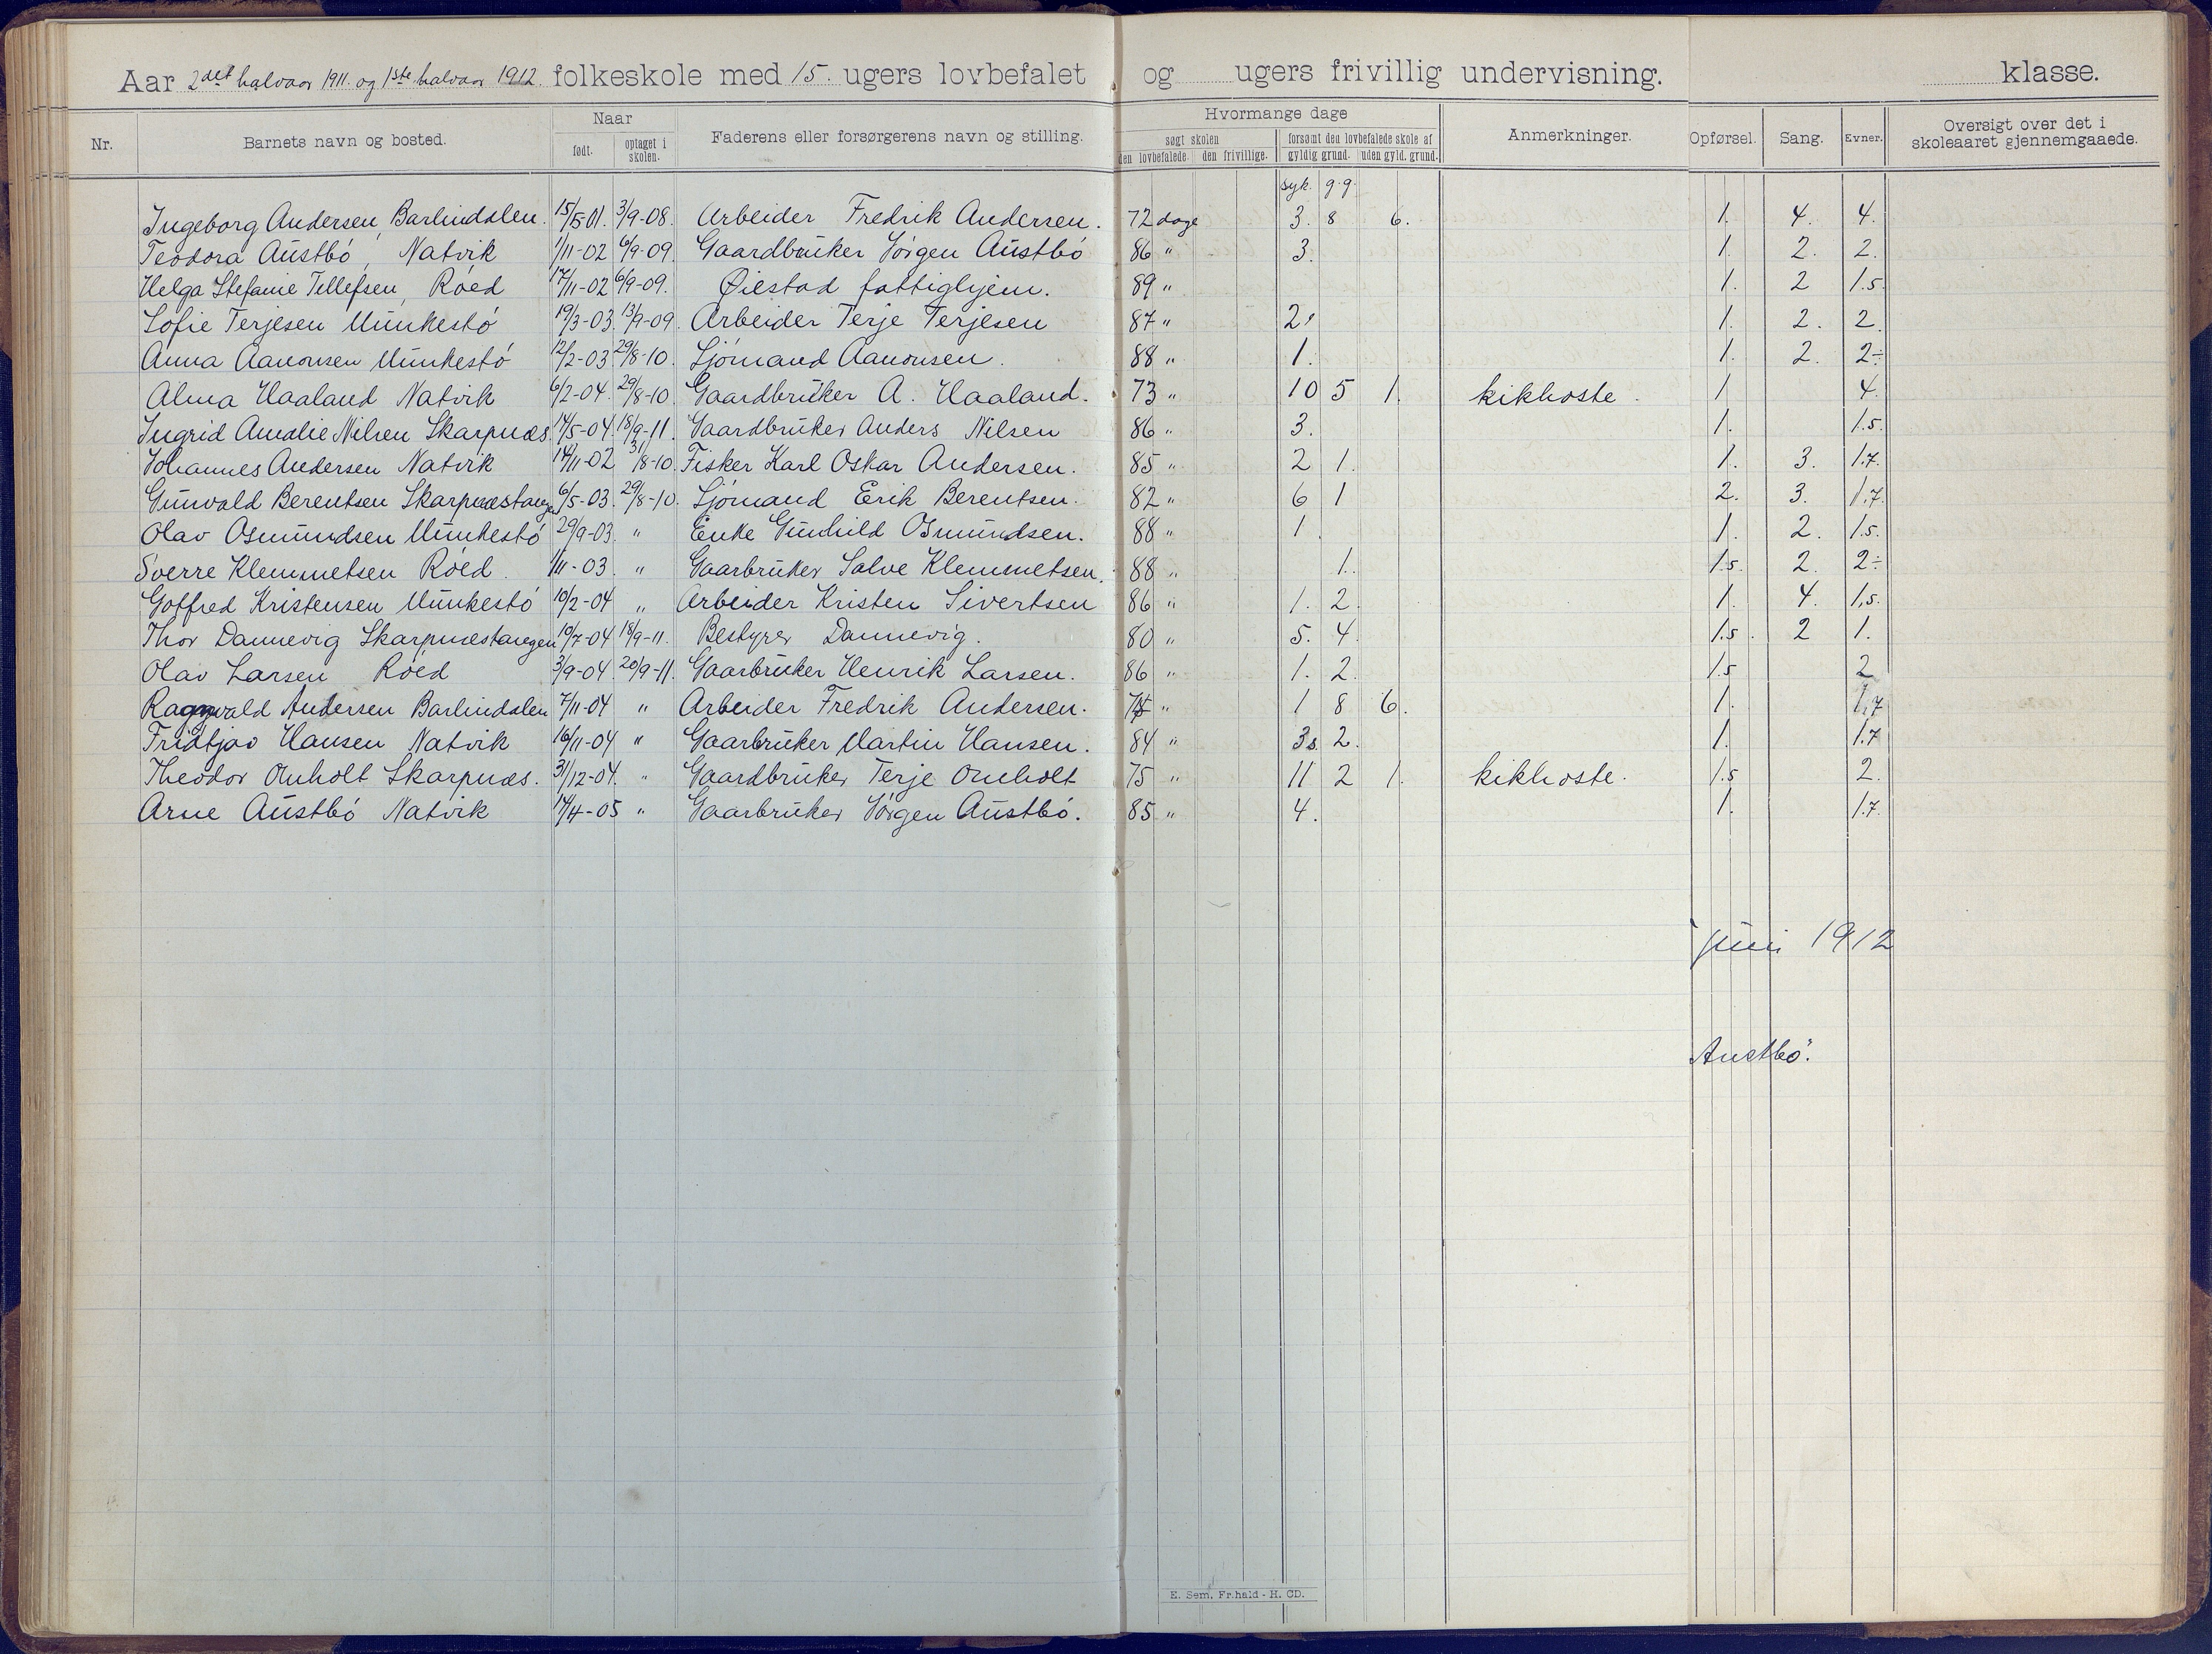 Aar 2det halvaar 1911. og 1ste halvaar 1912. folkeskole med 15. ugers lovbefalet og ugers frivillig undervisning. klasse.
Nr. Barnets navn og bosted. Naar født. optaget i skolen. Faderens eller forsørgerens navn og stilling. Hvormange dage søgt skolen den lovbefalede. den frivillige. forsømt den lovbefalede skole af gyldig grund. uden gyld. grund. Anmerkninger. Opførsel. Sang. Evner. Oversigt over det i skoleaaret gjennemgaaede.
syk. g.g.
Ingeborg Andersen, Barlindalen. 15/5-01. 3/9-08. Arbeider Fredrik Andersen. 72 dage 3. 8 6. 1. 4. 4.
Teodora Austbó, Natvik 1/11-02 6/9-09. Gaardbruker Jörgen Austbó 86 " 3. 1. 2. 2.
Helga Stefanie Tellefsen, Róed 17/11-02 6/9-09. Øiestad fattighjem. 89 " 1. 2 1.5.
Sofie Terjesen Munkestó 19/3-03. 13/9-09. Arbeider Terje Terjesen 87 " 2. 1. 2. 2.
Anna Aanonsen Munkestó 12/2-03 29/8-10. Sjómand Aanonsen. 88 " 1. 1. 2. 2÷
Alma Haaland Natvik 6/2-04. 29/8-10. Gaardbruker A. Haaland. 73 " 10 5 1. kikhoste. 1 4.
Ingrid Amalie Nilsen Skarpnæs. 14/5-04. 18/9-11. Gaardbruker Anders Nilsen 86 " 3. 1. 1.5.
Johannes Andersen Natvik 14/11-02 31/8-10. Fisker Karl Oskar Andersen. 85 " 2 1. 1. 3. 1.7.
Gunvald Berentsen Skarpnæstangen 6/5-03. 29/8-10. Sjómand Erik Berentsen. 82 " 6 1 2. 3. 1.7.
Olav Osmundsen Munkestó 29/9-03. " Enke Gunhild Osmundsen. 88 " 1. 1. 2. 1.5.
Sverre Klemmetsen Róed. 1/11-03. " Gaarbruker Salve Klemmetsen. 88 " 1. 1.5. 2. 2÷
Gotfred Kristensen Munkestó 10/2-04 " Arbeider Kristen Sivertsen 86 " 1. 2. 1. 4. 1.5.
Thor Dannevig Skarpnæstangen 10/7-04 18/9-11. Bestyrer Dannevig. 80 " 5. 4. 1.5. 2 1.
Olav Larsen Róed 3/9-04. 20/9-11. Gaarbruker Henrik Larsen. 86 " 1. 2. 1.5 2
Ragnvald Andersen Barlindalen 7/11-04 " Arbeider Fredrik Andersen. " 1 8 6. 1. 1.7
Fridtjav Hansen Natvik 16/11-04 " Gaarbruker Martin Hansen. 84 " 3s. 2. 1. 1.7
Theodor Omholt Skarpnæs. 31/12-04. " Gaardbruker Terje Omholt 75 " 11 2 1. kikhoste. 1.5 2.
Arne Austbó Natvik 14/4-05 " Gaarbruker Jörgen Austbó. 85 " 4. 1. 1.7.
juni 1912
Austbó.
E. Sem. Fr.hald - H. CD.